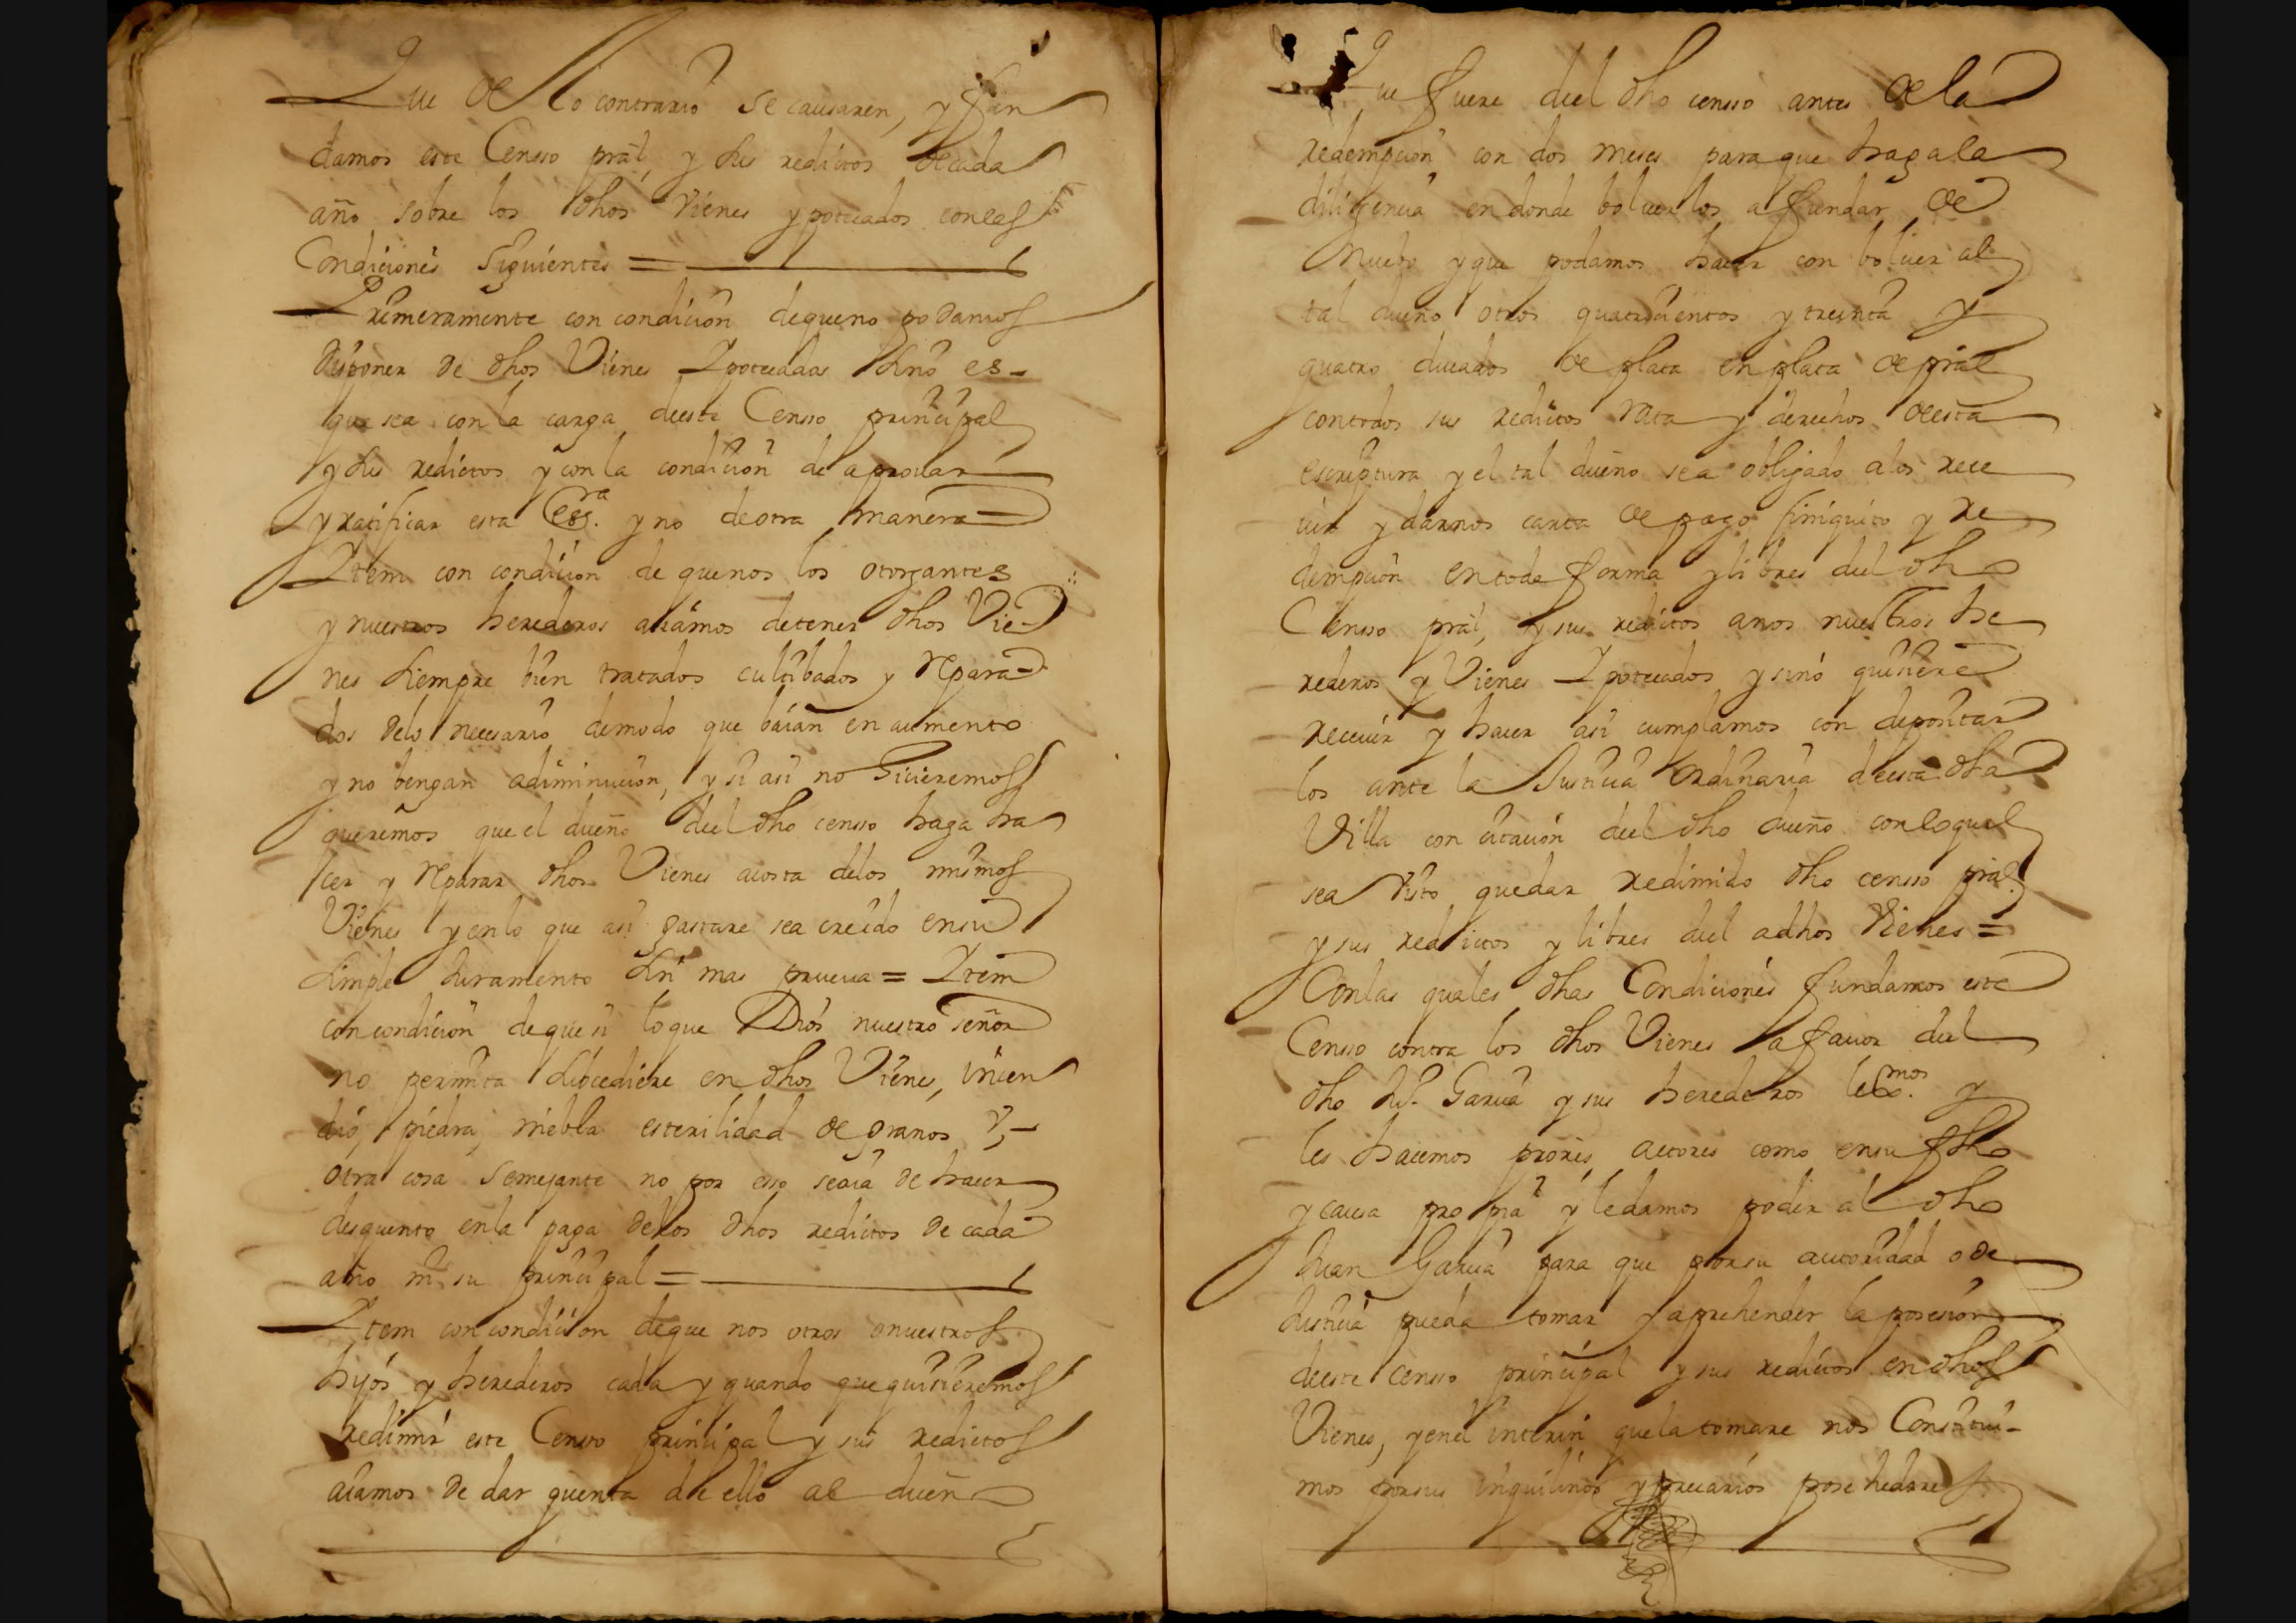 Que de lo contrario se causaren, y fun
damos este Censso pral, y sus redictos de cada
año sobre los dhos vienes ypotecados con las
Condiciones siguientes =
Primeramente con condicion de que no podamos
disponer de dhos Vienes Ypotecadas sino es
que sea con la carga de este Censso principal
y sus redictos y con la condicion de aprovar
y ratificar esta essra. y no de otra manera =
Ytem con condicion de que nos los otorgantes
y nuestros herederos aiamos de tener dhos Vie-
nes siempre bien tratados cultibados y repara-
dos delo necesario de modo que baian en aumento
y no bengan a diminucion, y si asi no hicieremos
queremos que el dueño del dho censso haga ha
cer y reparar dhos Vienes a costa de los mismos
Vienes y en lo que asi gastare sea creido en su
simple Juramento sin mas prueva = Ytem
con condicion de que si lo que Dios nuestro señor
no permita subcediere en dhos Vienes, incen
dio, piedra, niebla esterilidad de granos, v,
otra cosa semejante no por esso se aia de hacer
desquento en la paga de los dhos redictos de cada
año ni su principal =
Ytem con condicion de que nosotros o nuestros
hijos y herederos cada y quando que quisieremos
redimir este Censso principal y sus redictos
aiamos de dar quenta de ello al dueño
Que fuere del dho censso antes de la
redempcion con dos meses para que haga la
diligencia en donde bolverlos a fundar de
Nuebo y que podamos hacer con bolver al
tal dueño otros quatrocientos y treinta y
quatro ducados de plata en plata de pral
con todos sus redictos rata y derechos de esta
escriptura y el tal dueño sea obligado a los rece
vir y darnos carta de pago finiquito y re
dempcion en toda forma y libres del dho
Censso pral, y sus redictos a nos nuestros he
rederos y Vienes Ypotecados y sino quisiere
recevir y hacer asi cumplamos con depositar
los ante la Justicia ordinaria de esta dha
Villa con citacion del dho dueño con lo qual
sea visto quedar redimido dho censso pral
y sus redictos y libres del a dhos Vienes =
Con las quales dhas Condiciones fundamos este
Censso contra los dhos Vienes a favor del
dho Ju. Garcia y sus herederos lexmos. y
les hacemos prores actores como en su fho
y causa propia y le damos poder al dho
Juan Garcia para que por su autoridad o de
Justicia pueda tomar y aprehender la posesion
de este censso principal y sus redictos en dhos
Vienes, y en el interin que la tomare nos Constitui-
mos por sus inquilinos y precarios posehedores